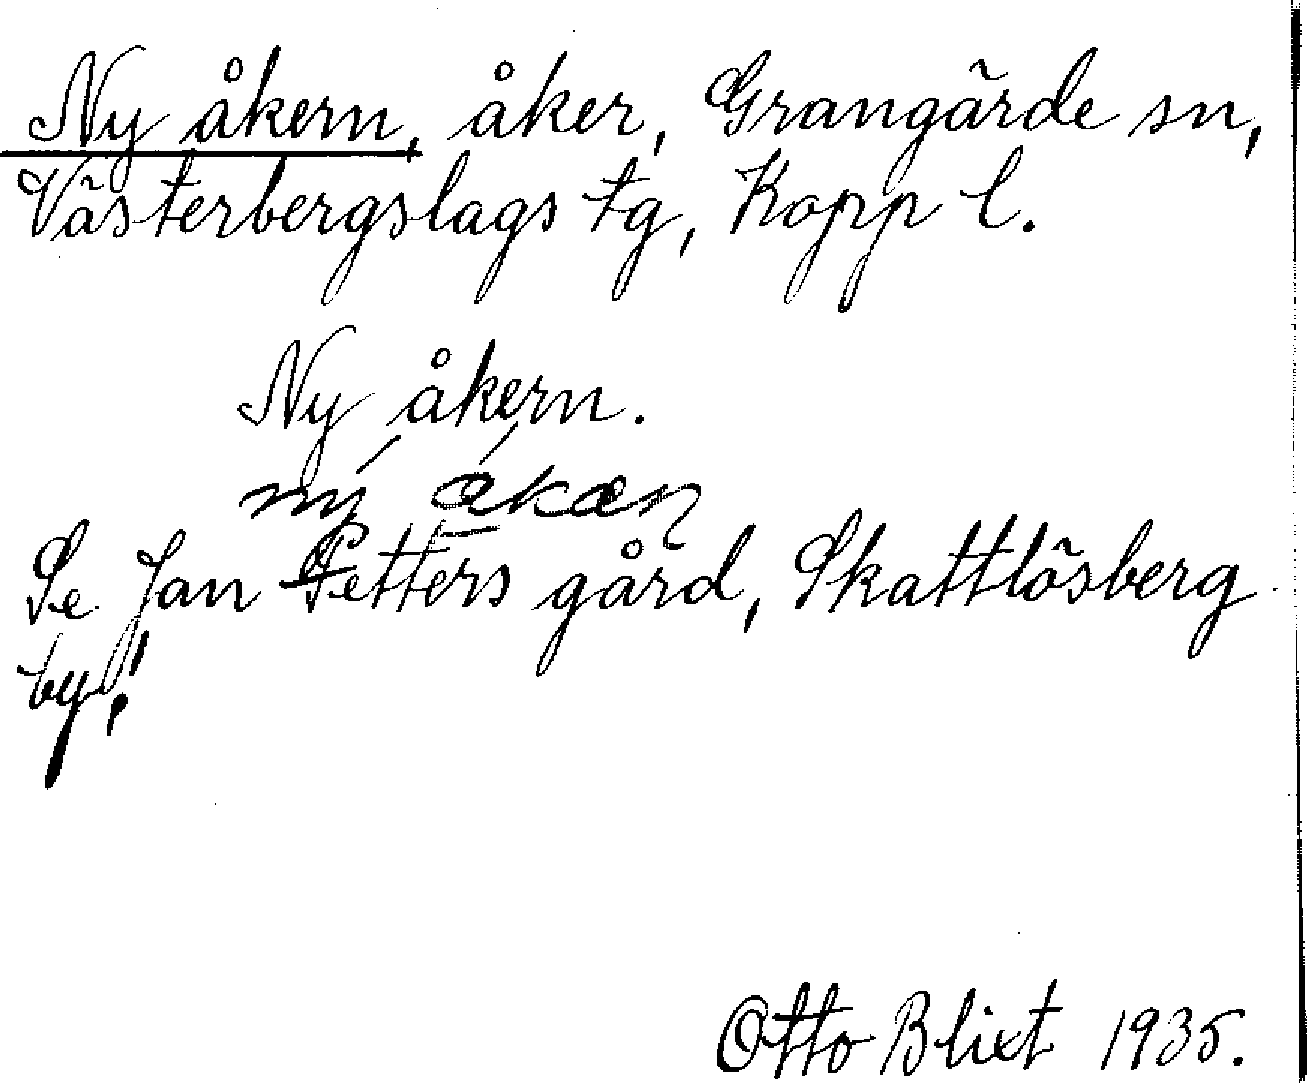 Ny åkern, åker, Grangärde sn,
Västerbergslags tg, Kopp l.
Ny åkern.
ny
Se Jan Petters gård, Skattlösberg
by!
Otto Blixt 1935.